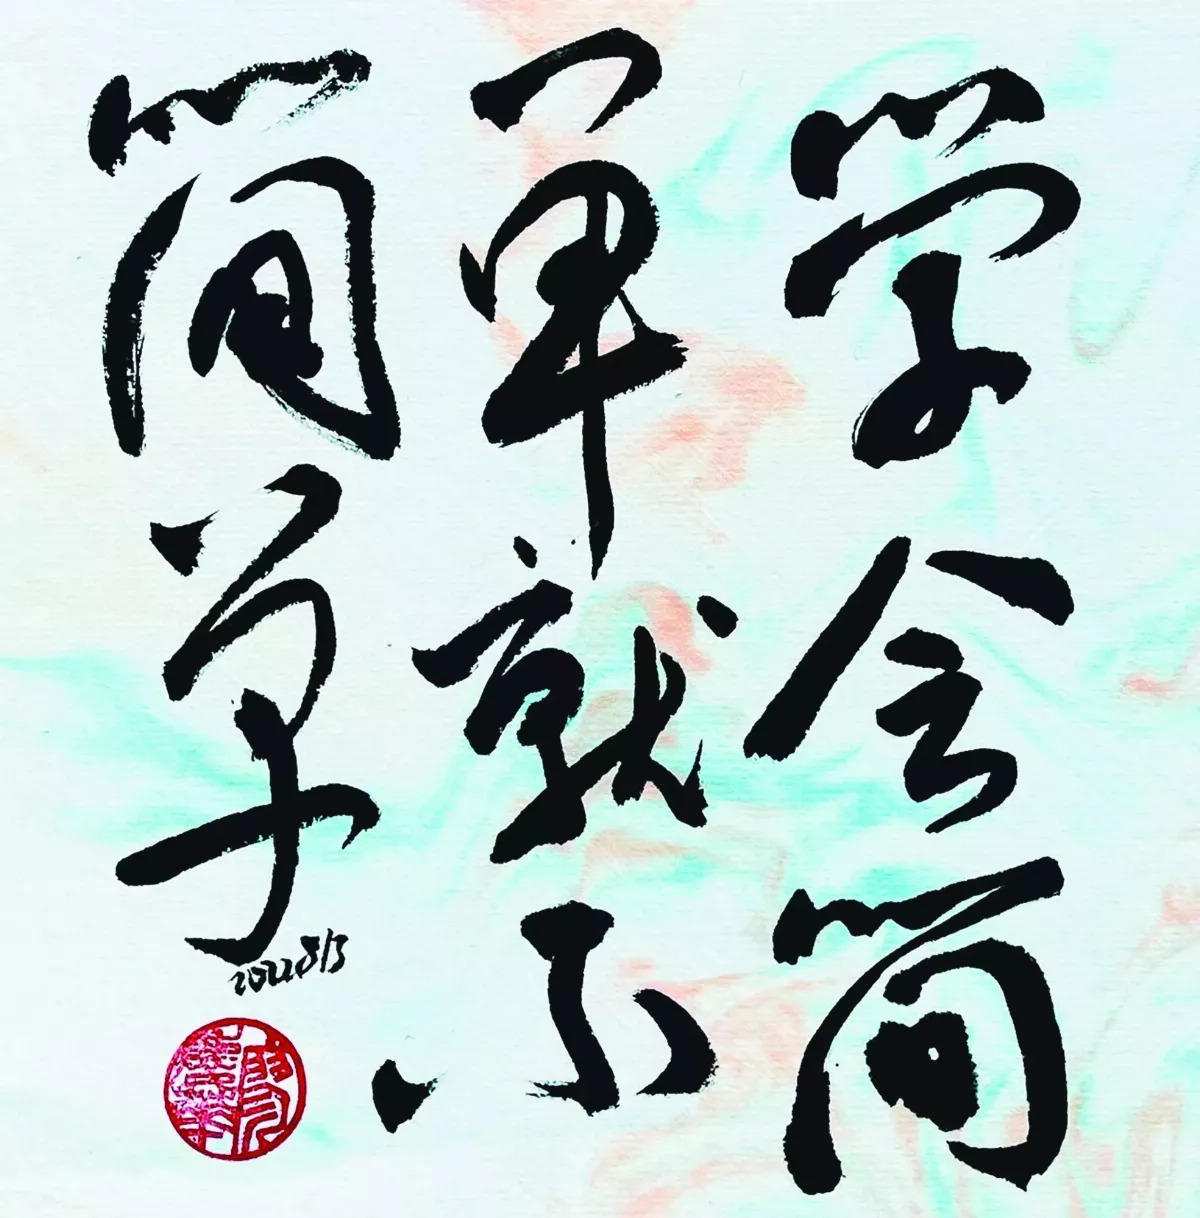 学会简
单就不
简单
2022 8/3